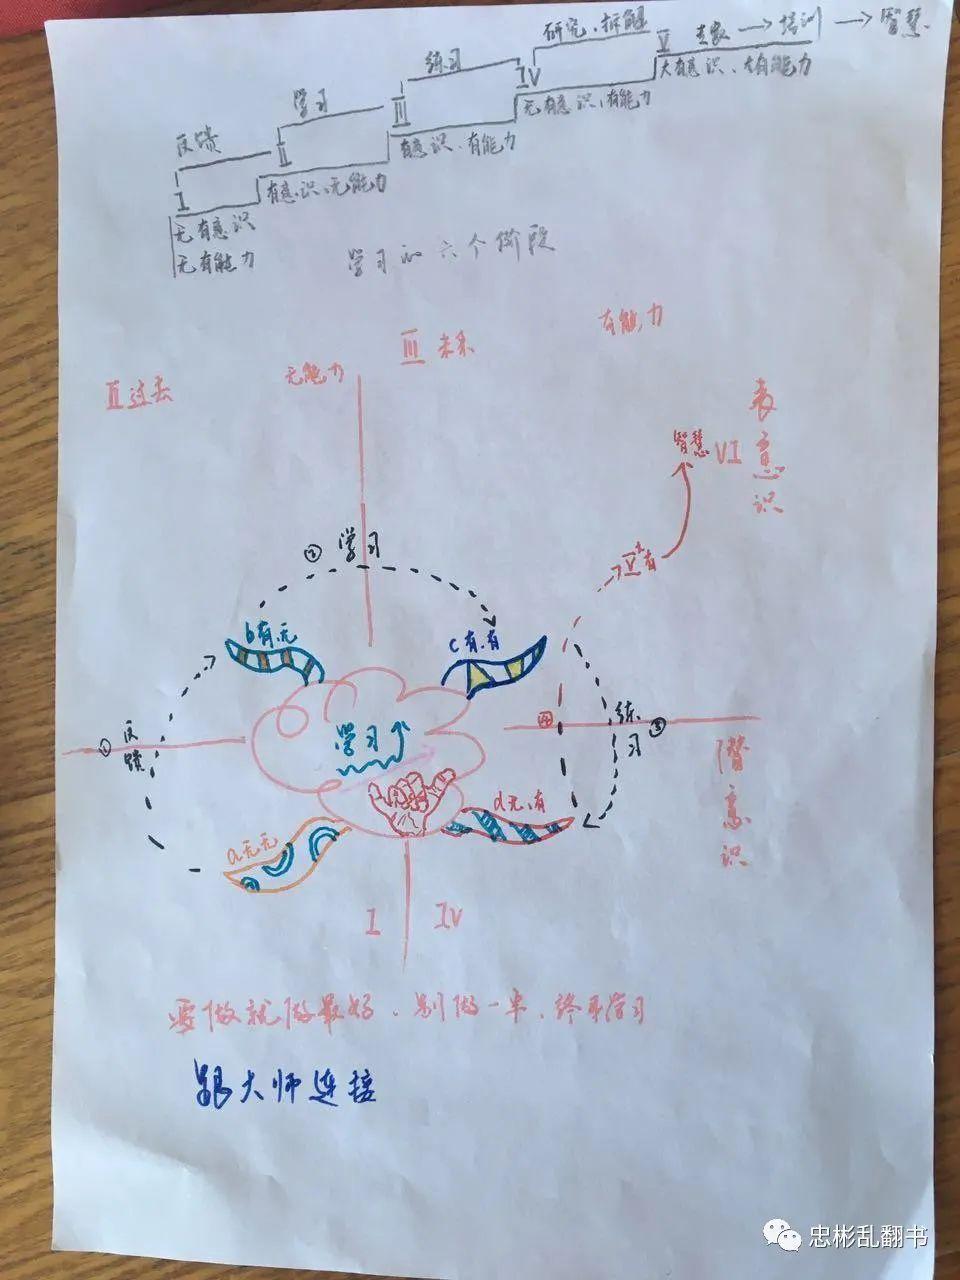 研究、拆解
V 专家 → 培训 → 智慧
练习
IV
大有意识、大有能力
学习
III
无有意识、有能力
反馈
II
有意识、有能力
I
有意识、无能力
无有意识
无有能力
学习的六个阶段
II 过去
无能力
III 未来
有能力
表意识
智慧 VI
② 学习
V 大有
b 有.无
c 有.有
① 反馈
学习
④
练习 ③
潜意识
a 无无
d 无.有
I
IV
要做就做最好、别做一半、终身学习
跟大师连接
忠彬乱翻书